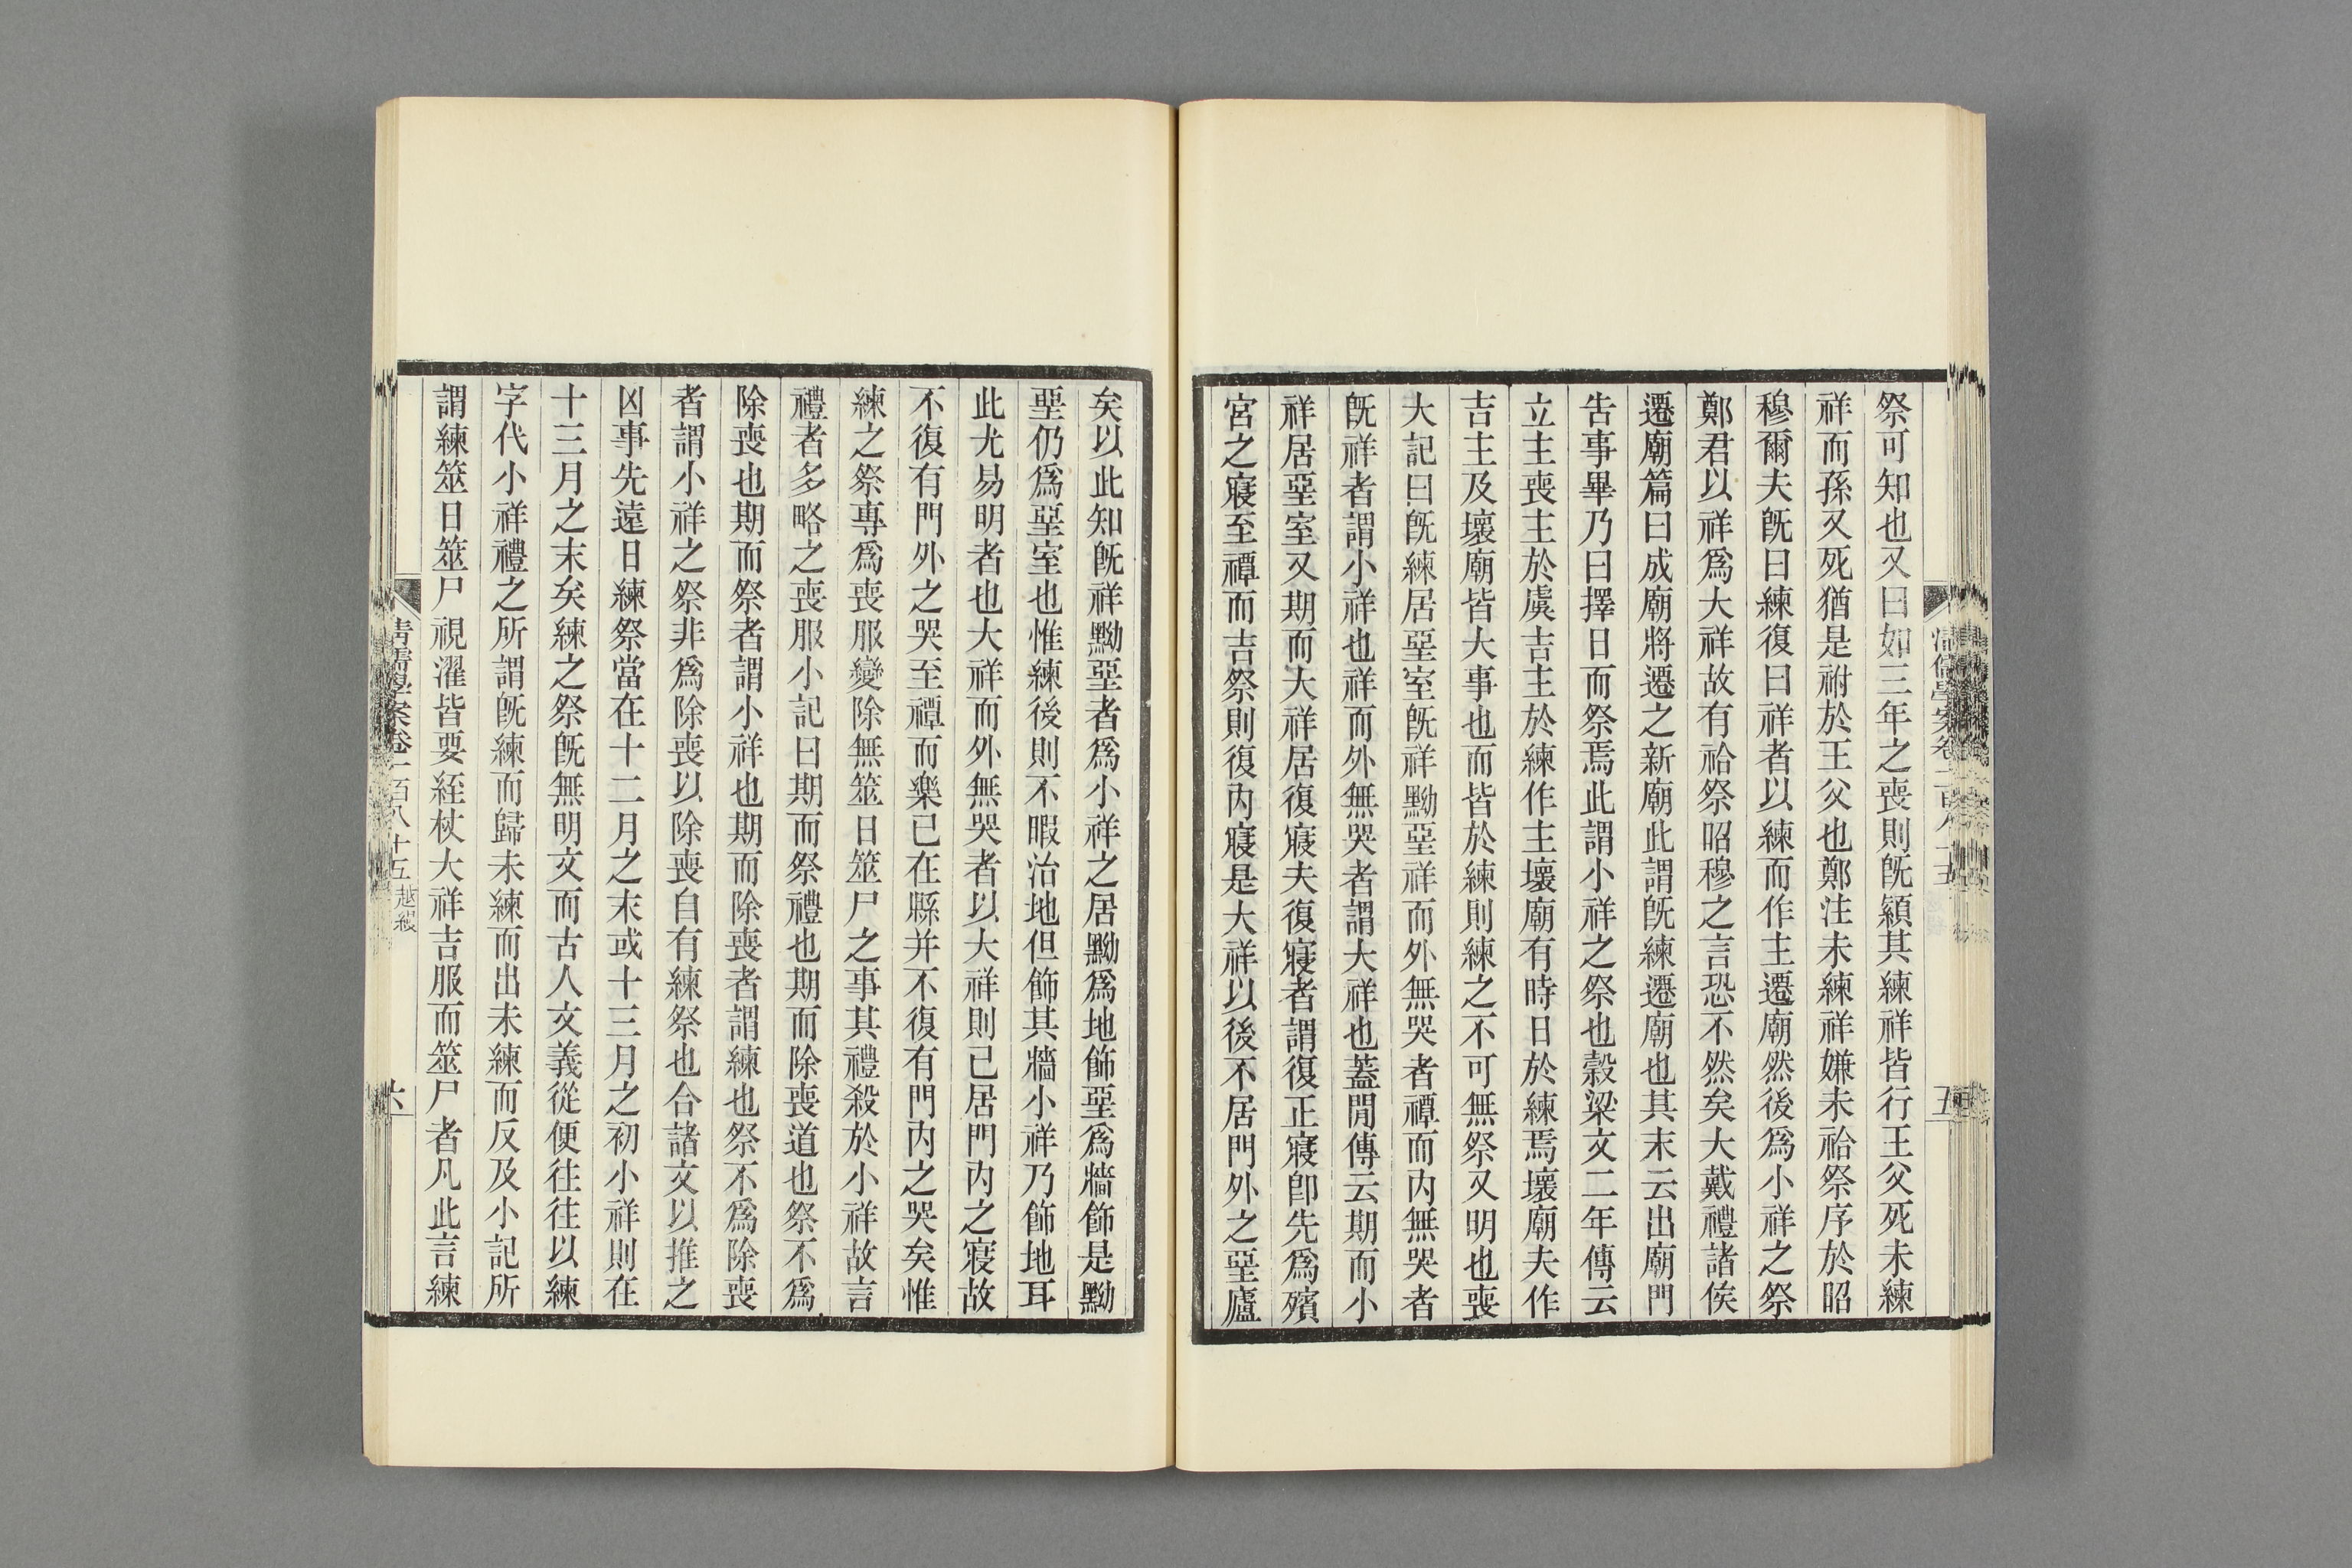 祭可知也又曰如三年之喪則旣顈其練祥皆行王父死未練
祥而孫又死猶是祔於王父也鄭注未練祥嫌未祫祭序於昭
穆爾夫旣曰練復曰祥者以練而作主遷廟然後爲小祥之祭
鄭君以祥爲大祥故有祫祭昭穆之言恐不然矣大戴禮諸侯
遷廟篇曰成廟將遷之新廟此謂旣練遷廟也其末云出廟門
告事畢乃曰擇日而祭焉此謂小祥之祭也穀梁文二年傳云
立主喪主於虞吉主於練作主壞廟有時日於練焉壞廟夫作
吉主及壞廟皆大事也而皆於練則練之不可無祭又明也喪
大記曰旣練居堊室旣祥黝堊祥而外無哭者禫而內無哭者
旣祥者謂小祥也祥而外無哭者謂大祥也蓋閒傳云期而小
祥居堊室又期而大祥居復寢夫復寢者謂復正寢卽先爲殯
宮之寢至禫而吉祭則復內寢是大祥以後不居門外之堊廬
清儒學案卷一百八十五
五
矣以此知旣祥黝堊者爲小祥之居黝爲地飾堊爲牆飾是黝
堊仍爲堊室也惟練後則不暇治地但飾其牆小祥乃飾地耳
此尤易明者也大祥而外無哭者以大祥則已居門內之寢故
不復有門外之哭至禫而樂已在縣并不復有門內之哭矣惟
練之祭專爲喪服變除無筮日筮尸之事其禮殺於小祥故言
禮者多略之喪服小記曰期而祭禮也期而除喪道也祭不爲
除喪也期而祭者謂小祥也期而除喪者謂練也祭不爲除喪
者謂小祥之祭非爲除喪以除喪自有練祭也合諸文以推之
凶事先遠日練祭當在十二月之末或十三月之初小祥則在
十三月之末矣練之祭旣無明文而古人文義從便往往以練
字代小祥禮之所謂旣練而歸未練而出未練而反及小記所
謂練筮日筮尸視濯皆要絰杖大祥吉服而筮尸者凡此言練
清儒學案卷一百八十五 越縵
六